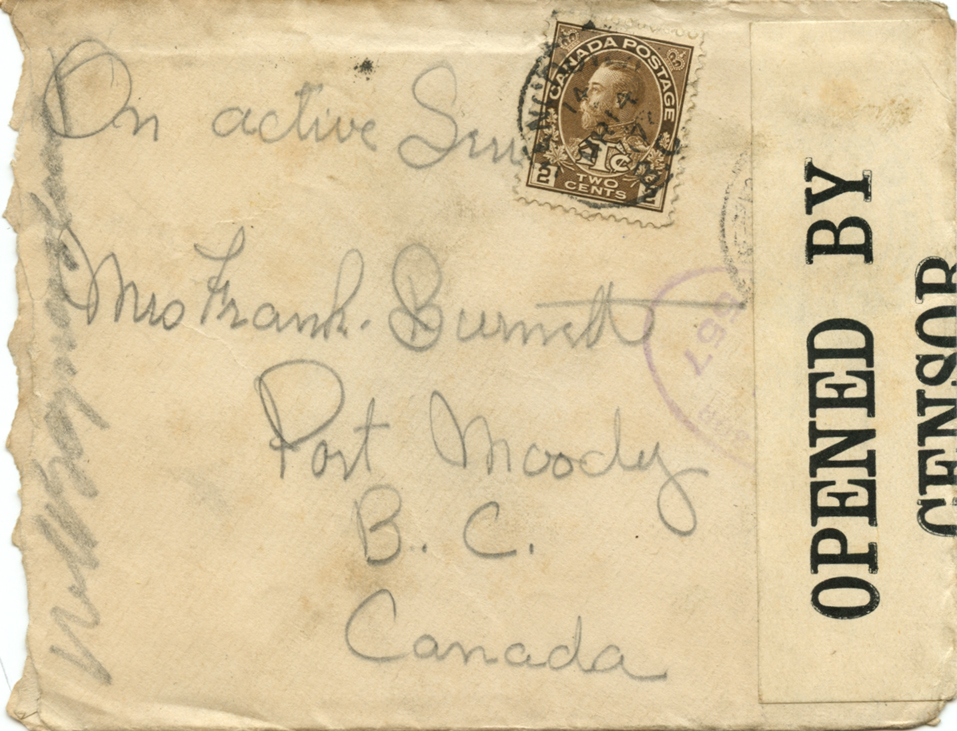 On active
CANADA POSTAGE
1Tc
2 TWO 2
CENTS
Mrs Frank. Burnett
Port Moody
B. C.
Canada
557
OPENED BY
CENSOR